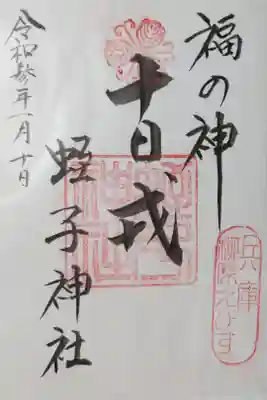 福の神
十日戎
蛭子神社
令和参年一月十日
兵庫
柳原えびす